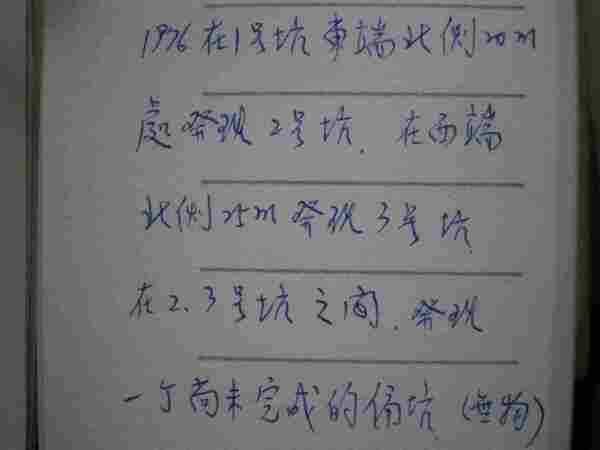 1976在1号坑東端北側20m
處発现2号坑、在西端
北側25m発现3号坑
在2、3号坑之间、発现
一个尚未完成的俑坑(無物)